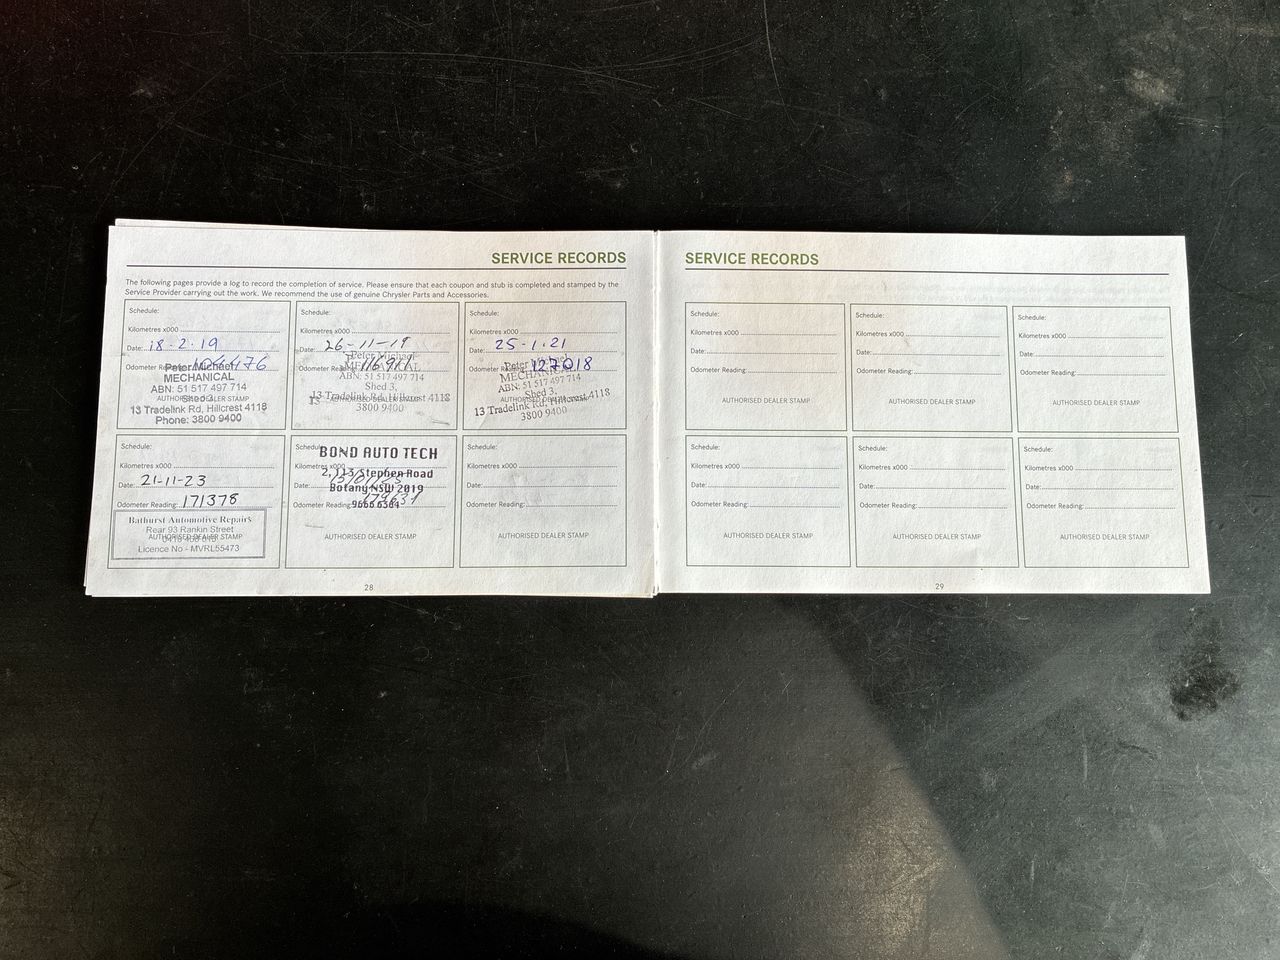 SERVICE RECORDS
The following pages provide a log to record the completion of service. Please ensure that each coupon and stub is completed and stamped by the
Service Provider carrying out the work. We recommend the use of genuine Chrysler Parts and Accessories.
Schedule:
Kilometres x000
Date: 18-2-19
Odometer
Peter Michael
MECHANICAL
ABN: 51 517 497 714
Shed 3,
AUTHORISED DEALER STAMP
13 Tradelink Rd, Hillcrest 4118
Phone: 3800 9400
Schedule:
Kilometres x000
Date: 26-11-19
Odometer
Peter Michael
MECHANICAL
ABN: 51 517 497 714
Shed 3,
AUTHORISED DEALER STAMP
13 Tradelink Rd, Hillcrest 4118
3800 9400
Schedule:
Kilometres x000
Date: 25-1-21
Odometer 127018
Peter Michael
MECHANICAL
ABN: 51 517 497 714
Shed 3,
AUTHORISED DEALER STAMP
13 Tradelink Rd, Hillcrest 4118
3800 9400
Schedule:
Kilometres x000
Date: 21-11-23
Odometer Reading: 171378
Bathurst Automotive Repairs
Rear 93 Rankin Street
AUTHORISED DEALER STAMP
Licence No - MVRL55473
Schedule:
BOND AUTO TECH
Kilometres x000
Stephen Road
Date:
Botany NSW 2019
Odometer Reading:
9666 6364
AUTHORISED DEALER STAMP
Schedule:
Kilometres x000
Date:
Odometer Reading:
AUTHORISED DEALER STAMP
28
SERVICE RECORDS
Schedule:
Kilometres x000
Date:
Odometer Reading:
AUTHORISED DEALER STAMP
Schedule:
Kilometres x000
Date:
Odometer Reading:
AUTHORISED DEALER STAMP
Schedule:
Kilometres x000
Date:
Odometer Reading:
AUTHORISED DEALER STAMP
Schedule:
Kilometres x000
Date:
Odometer Reading:
AUTHORISED DEALER STAMP
Schedule:
Kilometres x000
Date:
Odometer Reading:
AUTHORISED DEALER STAMP
Schedule:
Kilometres x000
Date:
Odometer Reading:
AUTHORISED DEALER STAMP
29